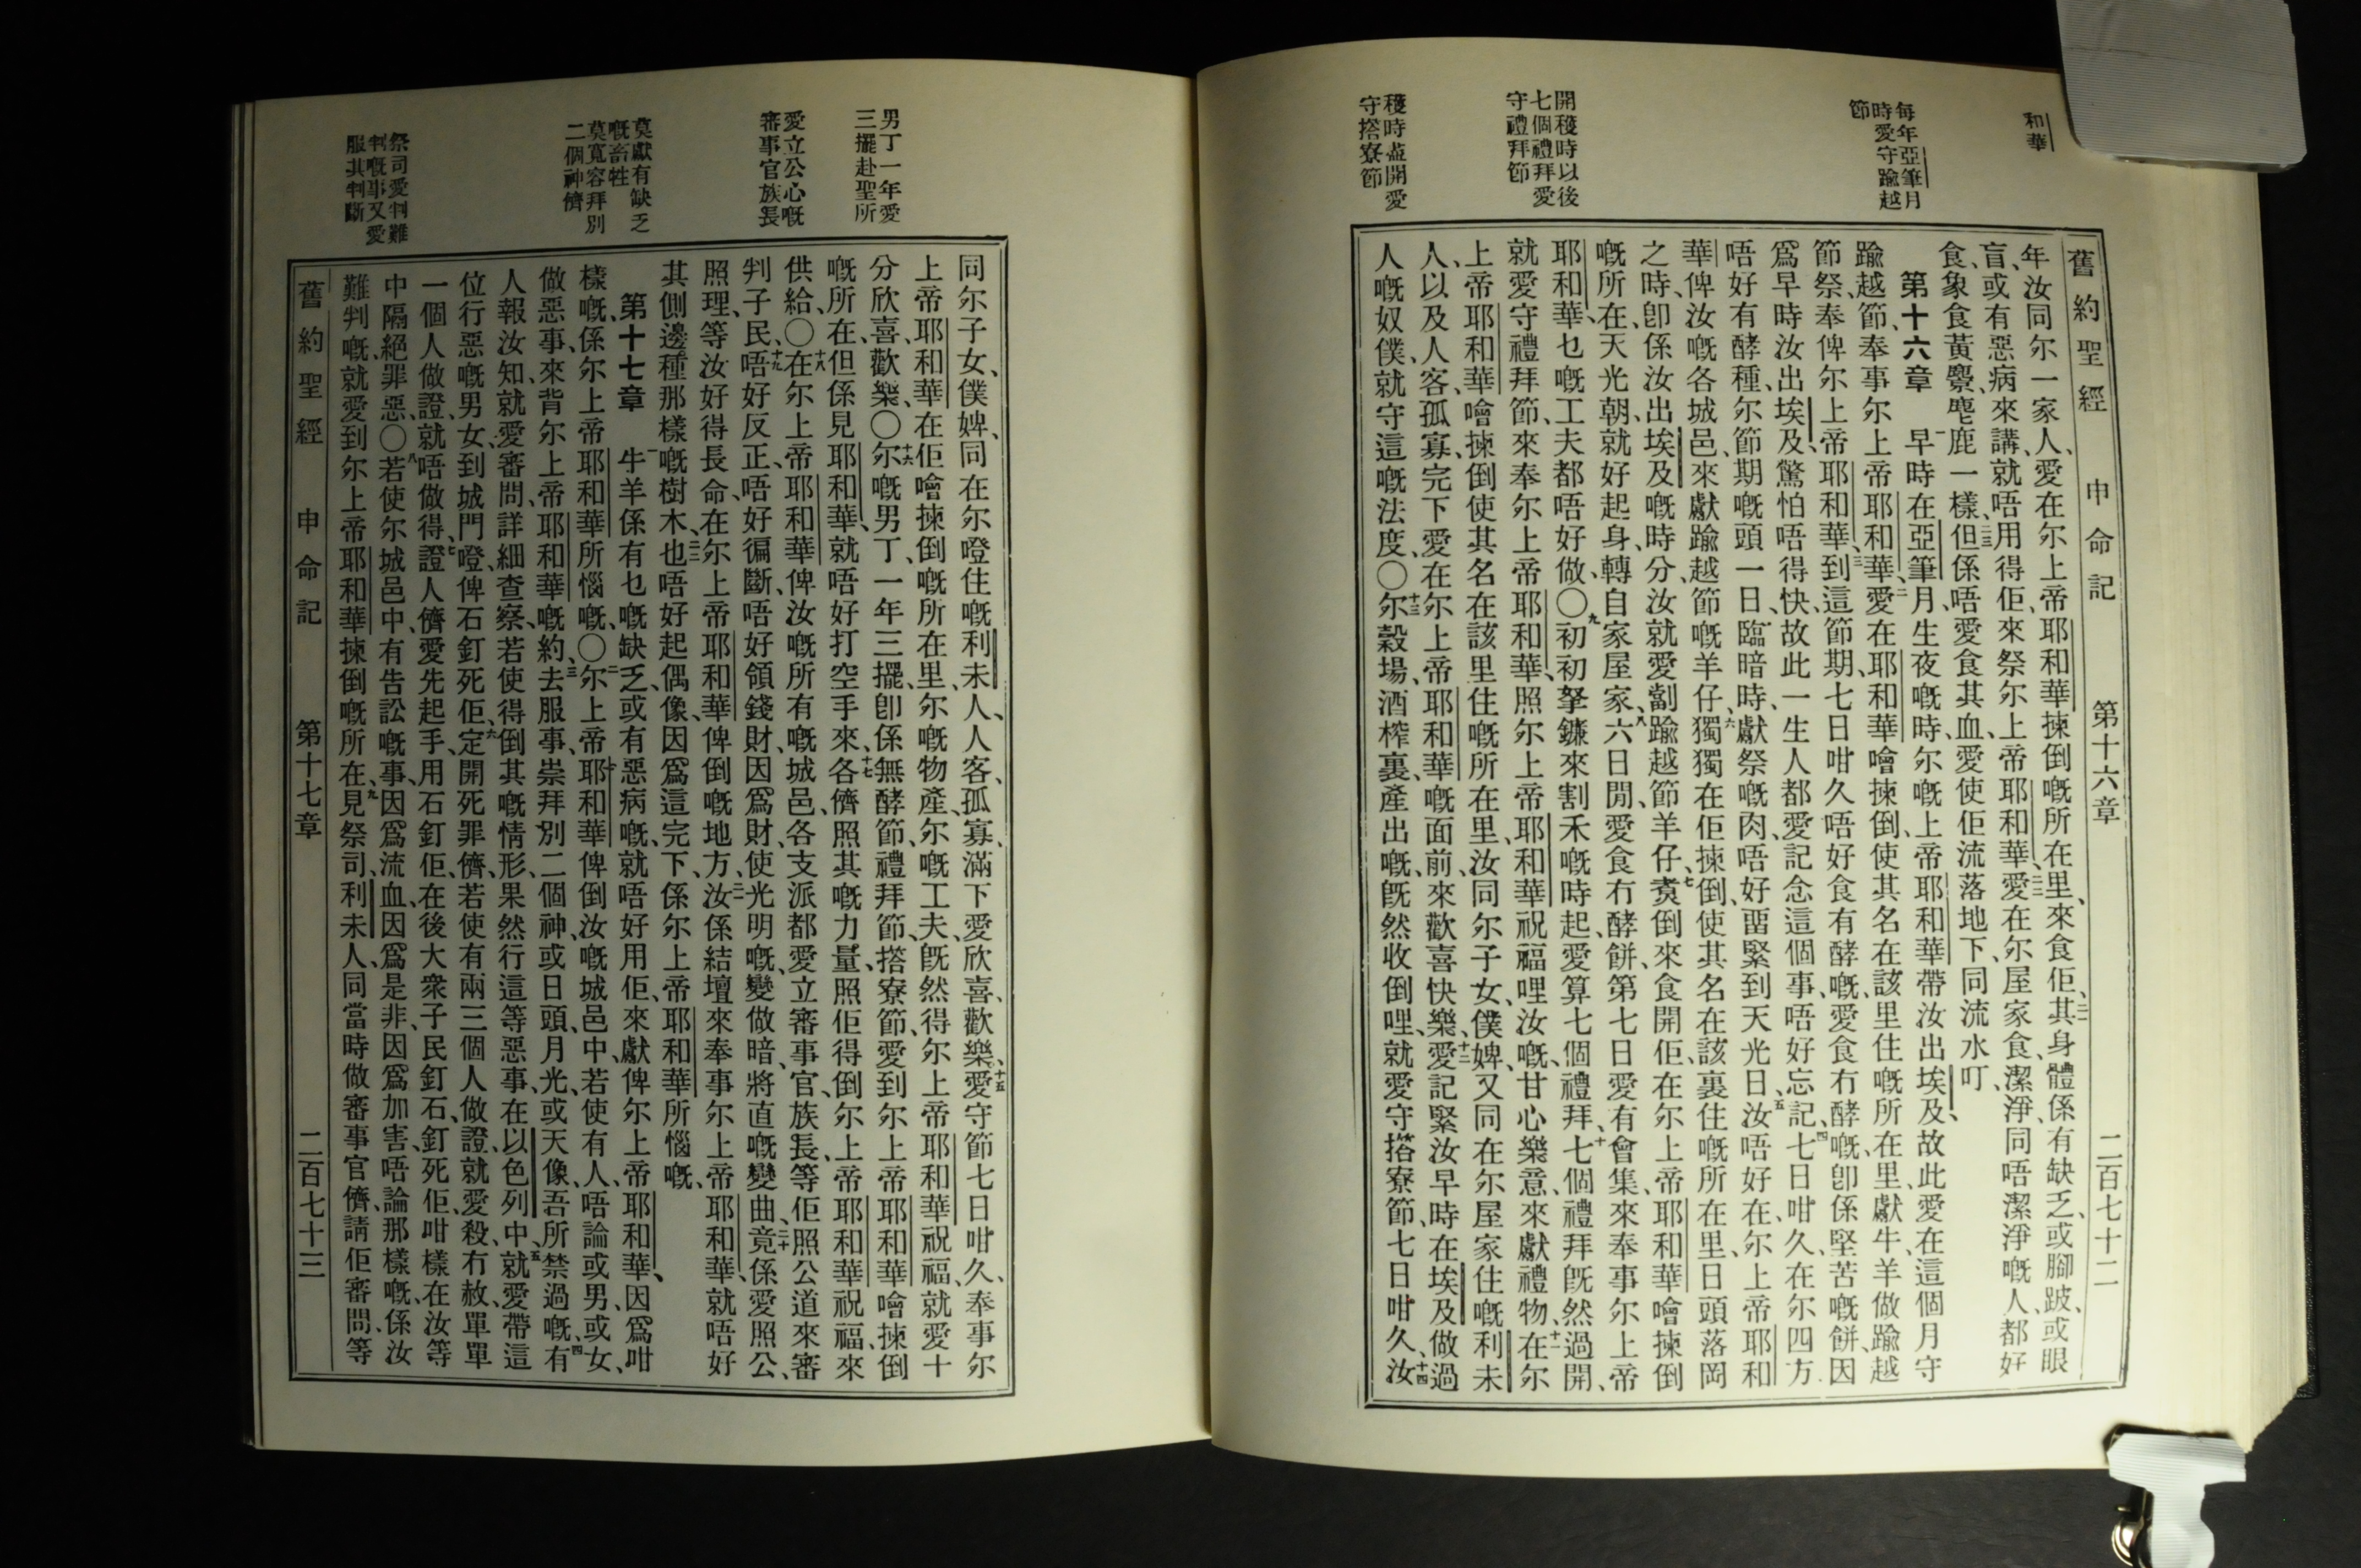 和華
每年亞筆月
時愛守踰越
節
開穫時以後
七個禮拜愛
守禮拜節
穫時盡開愛
守搭寮節
舊約聖經 申命記 第十六章 二百七十二
年、汝同尔一家人、愛在尔上帝耶和華揀倒嘅所在里、來食佢、二一其身體係有缺乏、或腳跛、或眼
盲、或有惡病、來講、就唔用得佢、來祭尔上帝耶和華、二二愛在尔屋家食、潔淨同唔潔淨嘅人、都好
食、象食黃麖麀鹿一樣、二三但係唔愛食其血、愛使佢流落地下、同流水叮、
第十六章 一早時在亞筆月、生夜嘅時、尔嘅上帝耶和華帶汝出埃及、故此愛在這個月守
踰越節、奉事尔上帝耶和華、二愛在耶和華噲揀倒、使其名在該里住嘅所在里、獻牛羊做踰越
節祭、奉俾尔上帝耶和華、三到這節期、七日咁久唔好食有酵嘅、愛食冇酵嘅、卽係堅苦嘅餅、因
爲早時汝出埃及、驚怕唔得快、故此一生人都愛記念這個事、唔好忘記、四七日咁久、在尔四方
唔好有酵種、尔節期嘅頭一日、臨暗時、獻祭嘅肉、唔好畱緊到天光日、五汝唔好在、尔上帝耶和
華俾汝嘅各城邑、來獻踰越節嘅羊仔、六獨獨在佢揀倒、使其名在該裏住嘅所在里、日頭落岡
之時、卽係汝出埃及嘅時分、汝就愛劏踰越節羊仔、七煑倒來食開佢、在尔上帝耶和華噲揀倒
嘅所在、天光朝、就好起身、轉自家屋家、八六日閒、愛食冇酵餅、第七日愛有會集、來奉事尔上帝
耶和華、乜嘅工夫都唔好做、〇九初初拏鐮來割禾嘅時起、愛算七個禮拜、十七個禮拜既然過開、
就愛守禮拜節、來奉尔上帝耶和華、照尔上帝耶和華祝福哩汝嘅、甘心樂意、來獻禮物、十一在尔
上帝耶和華噲揀倒使其名在該里住嘅所在里、汝同尔子女、僕婢、又同在尔屋家住嘅利未
人、以及人客、孤寡、完下愛在尔上帝耶和華嘅面前、來歡喜快樂、十二愛記緊汝早時在埃及做過
人嘅奴僕、就守這嘅法度、〇十三尔穀場、酒榨裏、產出嘅、旣然收倒哩、就愛守搭寮節、七日咁久、十四汝
男丁一年愛
三擺赴聖所
愛立公心嘅
審事官族長
莫獻有缺乏
嘅畜牲
莫寬容拜別
二個神儕
祭司愛判難
判嘅事又愛
服其判斷
同尔子女、僕婢、同在尔噔住嘅利未人、人客、孤寡、滿下愛欣喜、歡樂、十五愛守節七日咁久、奉事尔
上帝耶和華在佢噲揀倒嘅所在里、尔嘅物產、尔嘅工夫、旣然得尔上帝耶和華祝福、就愛十
分欣喜、歡樂、〇十六尔嘅男丁、一年三擺、卽係無酵節、禮拜節、搭寮節、愛到尔上帝耶和華噲揀倒
嘅所在、但係見耶和華、就唔好打空手來、十七各儕照其嘅力量、照佢得倒尔上帝耶和華祝福、來
供給、〇十八在尔上帝耶和華俾汝嘅所有嘅城邑、各支派都愛立審事官、族長、等佢照公道來審
判子民、十九唔好反正、唔好徧斷、唔好領錢財、因爲財、使光明嘅、變做暗、將直嘅變曲、二十竟係愛照公、
照理、等汝好得長命、在尔上帝耶和華俾倒嘅地方、二一汝係結壇來奉事尔上帝耶和華、就唔好
其側邊種那樣嘅樹木、二二也唔好起偶像、因爲這完下、係尔上帝耶和華所惱嘅、
第十七章 一牛羊係有乜嘅缺乏、或有惡病嘅、就唔好用佢、來獻俾尔上帝耶和華、因爲咁
樣嘅、係尔上帝耶和華所惱嘅、〇二尔上帝耶和華俾倒汝嘅城邑中、若使有人、唔論或男、或女、
做惡事、來背尔上帝耶和華嘅約、三去服事、崇拜別二個神、或日頭、月光、或天像、吾所禁過嘅、四有
人報汝知、就愛審問、詳細查察、若使得倒其嘅情形、果然行這等惡事、在以色列中、五就愛帶這
位行惡嘅男女、到城門噔、俾石釘死佢、六定開死罪儕、若使有兩三個人做證、就愛殺、冇赦、單單
一個人做證、就唔做得、七證人儕愛先起手、用石釘佢、在後大衆子民釘石、釘死佢、咁樣在汝等
中隔絕罪惡、〇八若使尔城邑中、有告訟嘅事、因爲流血、因爲是非、因爲加害、唔論那樣嘅、係汝
難判嘅、就愛到尔上帝耶和華揀倒嘅所在、九見祭司、利未人、同當時做審事官儕、請佢審問、等
舊約聖經 申命記 第十七章 二百七十三